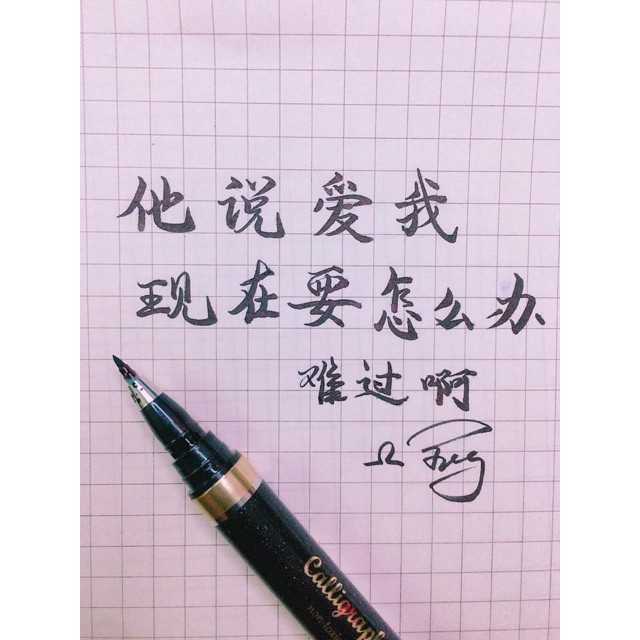 他说爱我
现在要怎么办
难过啊
Ω
Calligraph
non-toxi